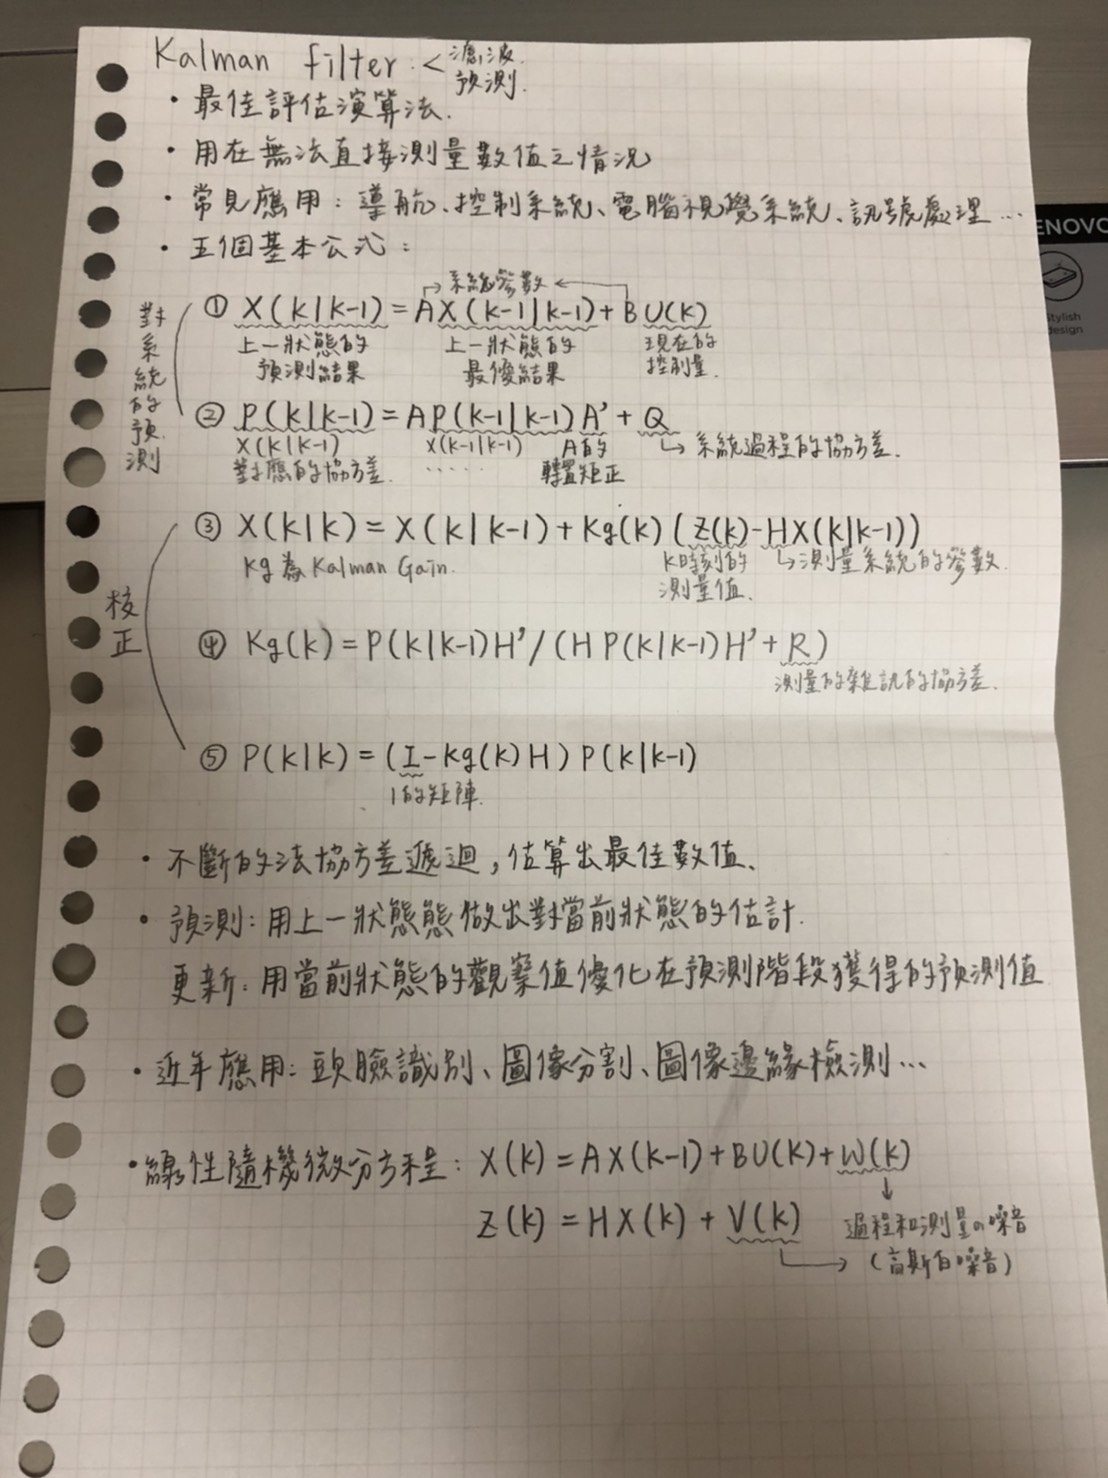 Kalman filter: < 濾波.
預測.
・最佳評估演算法.
・用在無法直接測量數值之情況
・常見應用：導航、控制系統、電腦視覺系統、訊號處理...
・五個基本公式：
對系統的預測
系統參數
① X(k|k-1) = AX(k-1|k-1) + BU(k)
上一狀態的預測結果
上一狀態的最優結果
現在的控制量.
② P(k|k-1) = AP(k-1|k-1)A' + Q
X(k|k-1)對應的協方差.
X(k-1|k-1) ......
A的轉置矩正
系統過程的協方差.
校正
③ X(k|k) = X(k|k-1) + Kg(k) (Z(k)-HX(k|k-1))
Kg為Kalman Gain.
K時刻的測量值.
測量系統的參數.
④ Kg(k) = P(k|k-1)H'/(HP(k|k-1)H' + R)
測量的雜訊的協方差.
⑤ P(k|k) = (I-Kg(k)H) P(k|k-1)
1的矩陣.
・不斷的法協方差遞迴，估算出最佳數值、
・預測：用上一狀態態做出對當前狀態的估計.
更新：用當前狀態的觀察值優化在預測階段獲得的預測值
・近年應用：頭臉識別、圖像分割、圖像邊緣檢測...
・線性隨機微分方程： X(k) = AX(k-1) + BU(k) + W(k)
Z(k) = HX(k) + V(k)
過程和測量の噪音
(高斯白噪音)
ENOVO
tylish
design